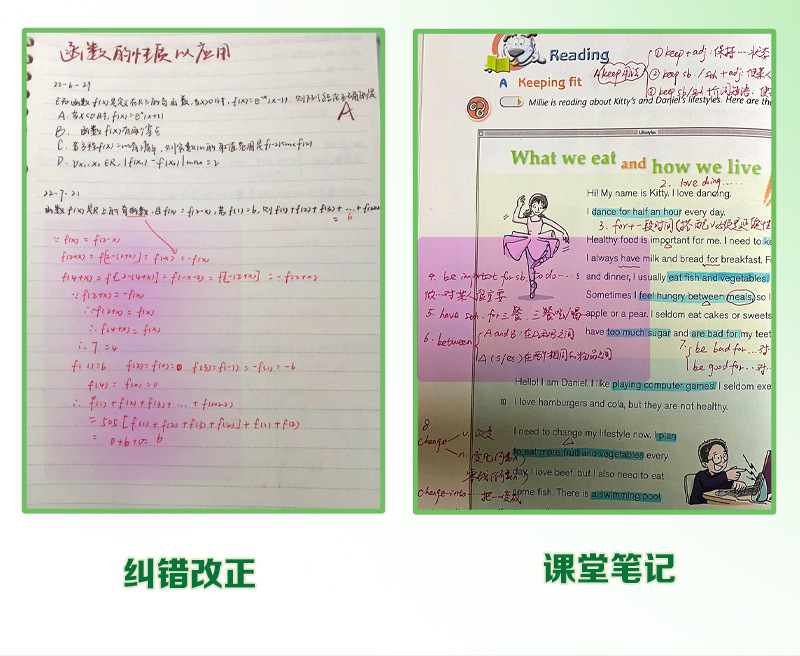 函数的性质以应用
22-6-29
已知函数f(x)是定在R上的奇函数,当x>0时, f(x)=e⁻ˣ(x-1), 则下列结论正确的是
A
A. 当x<0时, f(x)=eˣ(x+1)
B. 函数f(x)有两个零点
D. ∀x₁, x₂∈R, |f(x₁)-f(x₂)|max=2
22-7-21
函数f(x)是R上的奇函数, 且f(x)=f(2-x), 若f(1)=6, 则f(1)+f(2)+f(3)+…+f(2022)
= 6
∵ f(x)=f(2-x)
f(2+x)=f[2-(2+x)]=f(-x)=-f(x)
f(4+x)=f[2-(4+x)]=f(-x-2)=f[-(2+x)]=-f(2+x)
∵f(2+x)=-f(x)
∴-f(2+x)=f(x)
∴f(4+x)=f(x)
∴T=4
f(1)=6 f(2)=f(0)=0 f(3)=f(-1)=-f(1)=-6
f(4)=f(0)=0
∴ f(1)+f(2)+f(3)+…+f(2022)
=505[f(1)+f(2)+f(3)+f(4)]+f(1)+f(2)
= 0+6+0=6
纠错改正
Reading
① keep + adj: 保持…状态
A Keeping fit
keep用法
② keep sb./sth + adj: 使某人
③ keep sb/sth + 介词短语: 使
Millie is reading about Kitty's and Daniel's lifestyles. Here are the
Lifestyles
What we eat and how we live
Hi! My name is Kitty. I love dancing.
2. love doing……
I dance for half an hour every day.
3. for + 一段时间
Healthy food is important for me. I need to ke
I always have milk and bread for breakfast. Fo
4. be important for sb. to do…
and dinner, I usually eat fish and vegetables.
做…对某人很重要
Sometimes I feel hungry between meals, so I
5. have sth. for 三餐. 三餐吃/喝
apple or a pear. I seldom eat cakes or sweets
6. between
A and B: 在A和B之间
have too much sugar and are bad for my teet
A (s/es) 在两个相同人物品之间
7. be bad for…对
be good for…对
Hello! I am Daniel. I like playing computer games. I seldom exe
10 I love hamburgers and cola, but they are not healthy.
8.
change
v. 改变
I need to change my lifestyle now. I plan
n. 变化(可数)
to eat more fruit and vegetables every
零钱(不可数)
day. I love beef, but I also need to eat
change…into… 把…变成
some fish. There is a swimming pool
课堂笔记